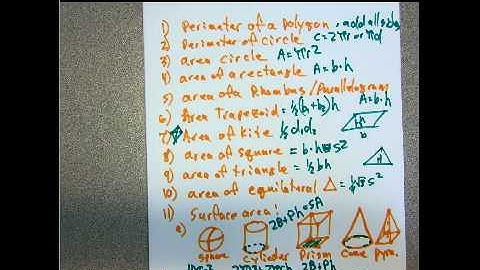 1) Perimeter of a Polygon, add all sides
2) Perimeter of circle C=2πr or πd
3) area circle A=πr2
4) area of a rectangle A=b·h
5) area of a Rhombus/Parallelogram A=b·h
6) Area Trapezoid=½(b₁+b₂)h
7) Area of kite ½d₁d₂
8) area of square =b·h s²
9) area of triangle =½bh
10) area of equilateral Δ= s²
11) Surface area:
a) 2B+Ph=SA
sphere cylinder Prism Cone pyra.
2B+Ph